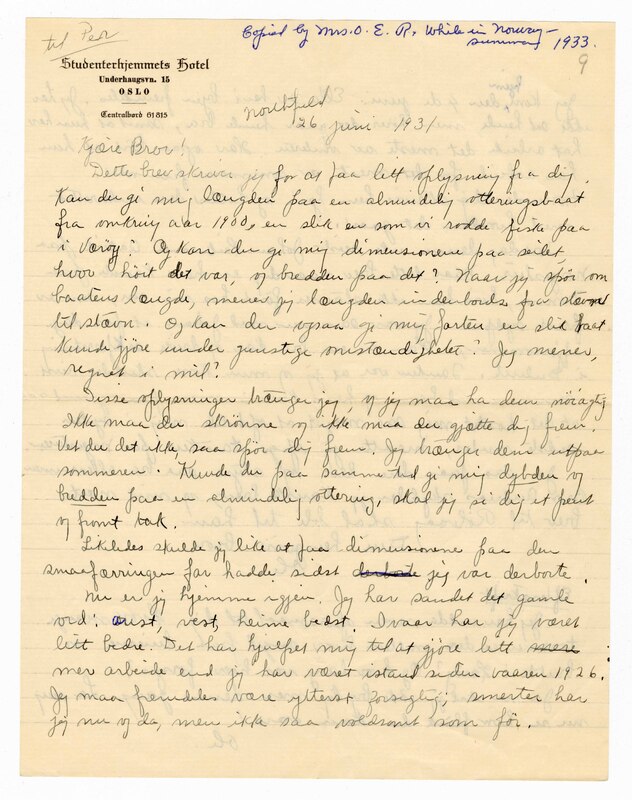 til Per
Copied by Mrs. O. E. R. while in Norway –
summer 1933.
9
Studenterhjemmets Hotel
Underhaugsvn. 15
OSLO
Centralbord 61815
Northfield
26 juni 1931
Kjære Bror!
Dette brev skriver jeg for at faa litt oplysning fra dig.
Kan du gi mig længden paa en almindelig otteringsbaat
fra omkring aar 1900, en slik en som vi rodde fiske paa
i Værøy? Og kan du gi mig dimensionene paa seilet,
hvor höit det var, og bredden paa det? Naar jeg spör om
baatens længde, mener jeg længden indenbords fra stævn
til stævn. Og kan du ogsaa gi mig farten en slik baat
kunde gjöre under gunstige omstændigheter? Jeg mener,
regnet i mil?
Disse oplysninger trænger jeg, og jeg maa ha dem nöiagtig
Ikke maa du skrönne og ikke maa du gjette dig frem.
Vet du det ikke, saa spör dig frem. Jeg trænger dem utpaa
sommeren. Kunde du paa samme tid gi mig dybden og
bredden paa en almindelig ottering, skal jeg si dig et pent
og fromt tak.
Likeledes skulde jeg like at faa dimensionene paa den
smaafæringen far hadde sidst derborte jeg var derborte.
Nu er jeg hjemme igjen. Jeg har sandet det gamle
ord: oust, vest, heime bedst. I vaar har jeg været
litt bedre. Det har hjulpet mig til at gjöre litt mere
mer arbeide end jeg har været istand siden vaaren 1926.
Jeg maa fremdeles være ytterst forsigtig; smerter har
jeg nu og da, men ikke saa voldsomt som för.